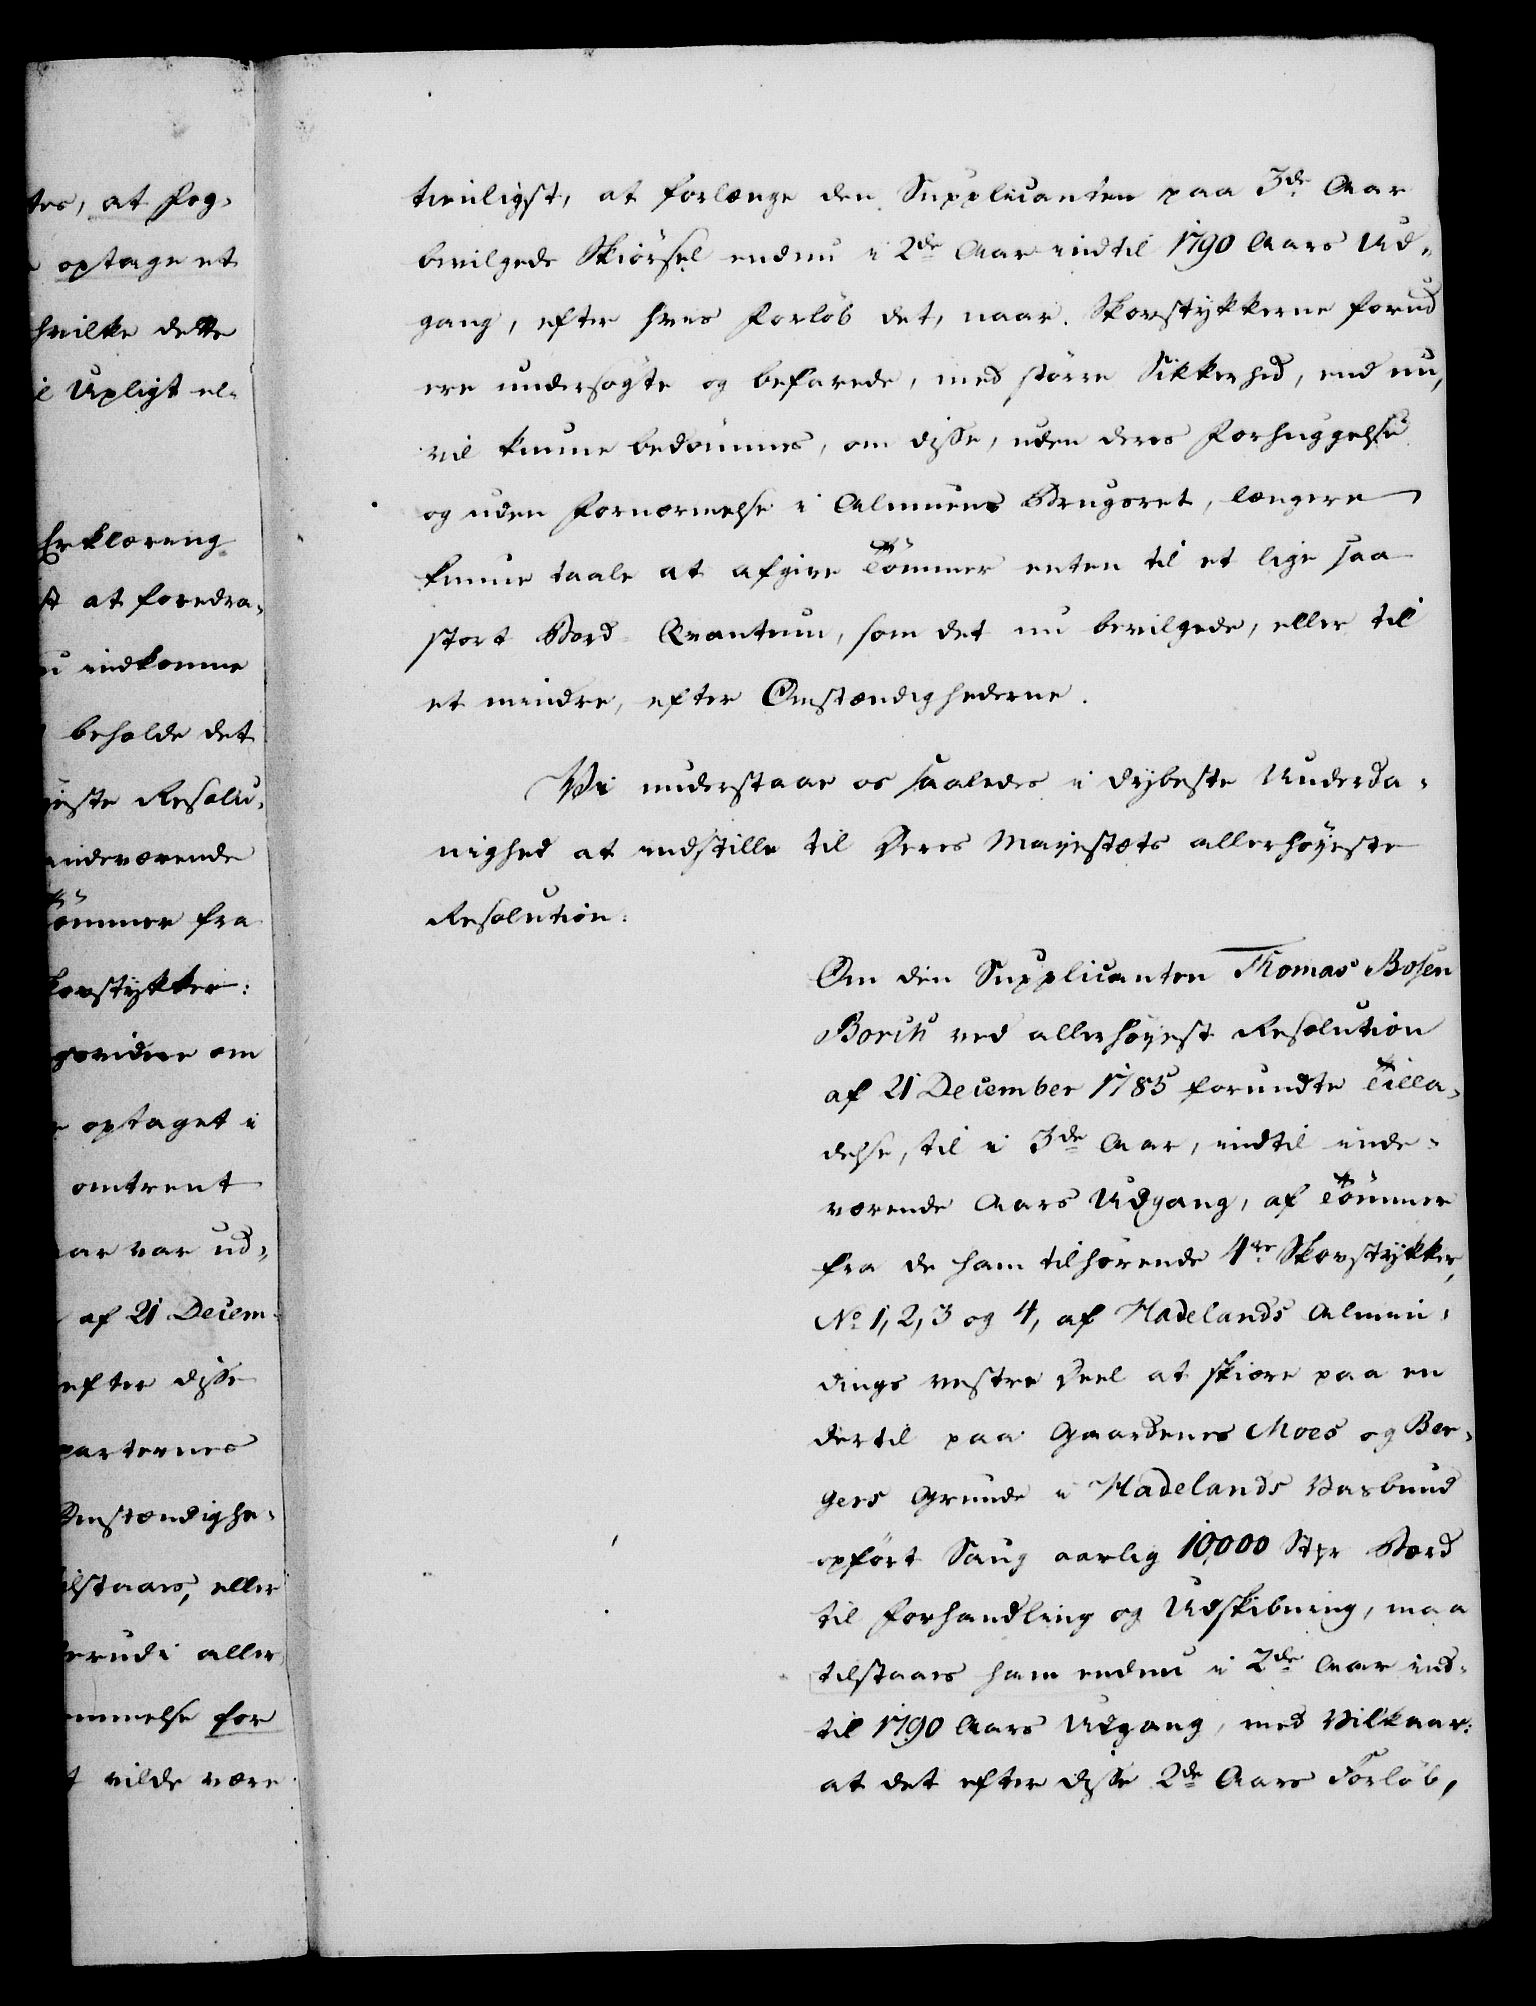 tes, at Fog-
optage et
hvilke dette
il Upligt el-
Erklæring
st at foredra-
u indkomme
beholde det
jeste Resolu-
indeværende
Tömmer fra
kovstykker:
gvidere om
e optaget i
omtrent
aar var ud-
af 21 Decem-
efter disse
parternes
Omstændighe-
ilstaaes, eller
erudi aller
ommelse for
t vilde være
tienligst, at forlænge den Supplicanten paa 3de Aar
bevilgede Skiörsel endnu i 2de Aar indtil 1790 Aars Ud-
gang, efter hvis Forlöb det, naar Skovstykkerne forud
ere undersögte og befarede, med större Sikkerhed, end nu,
vil kunne bedömmes, om disse, uden deres Forhuggelse
og uden Fornærmelse i Almuens Brugsret, længere
kunne taale at afgive Tömmer enten til et lige saa
stort Bord Qvantum, som det nu bevilgede, eller til
et mindre, efter Omstændighederne.
Vi understaae os saaledes i dybeste Underda-
nighed at indstille til Deres Majestæts allerhöyeste
Resolution:
Om den Supplicanten Thomas Bosen
Borch ved allerhöyest Resolution
af 21 December 1785 forundte Tilla-
delse, til i 3de Aar, indtil inde-
værende Aars Udgang, af Tömmer
fra de ham tilhörende 4re Skovstykker,
No 1, 2, 3 og 4, af Hadelands Almin-
dings vestre Deel at skiære paa en
dertil paa Gaardenes Moes og Ber-
gers Grunde i Hadelands Vasbund
opfört Saug aarlig 10,000 Stkr Bord
til Forhandling og Udskibning, maa
tilstaaes ham endnu i 2de Aar ind-
til 1790 Aars Udgang, med Vilkaar:
at det efter disse 2de Aars Forlöb,